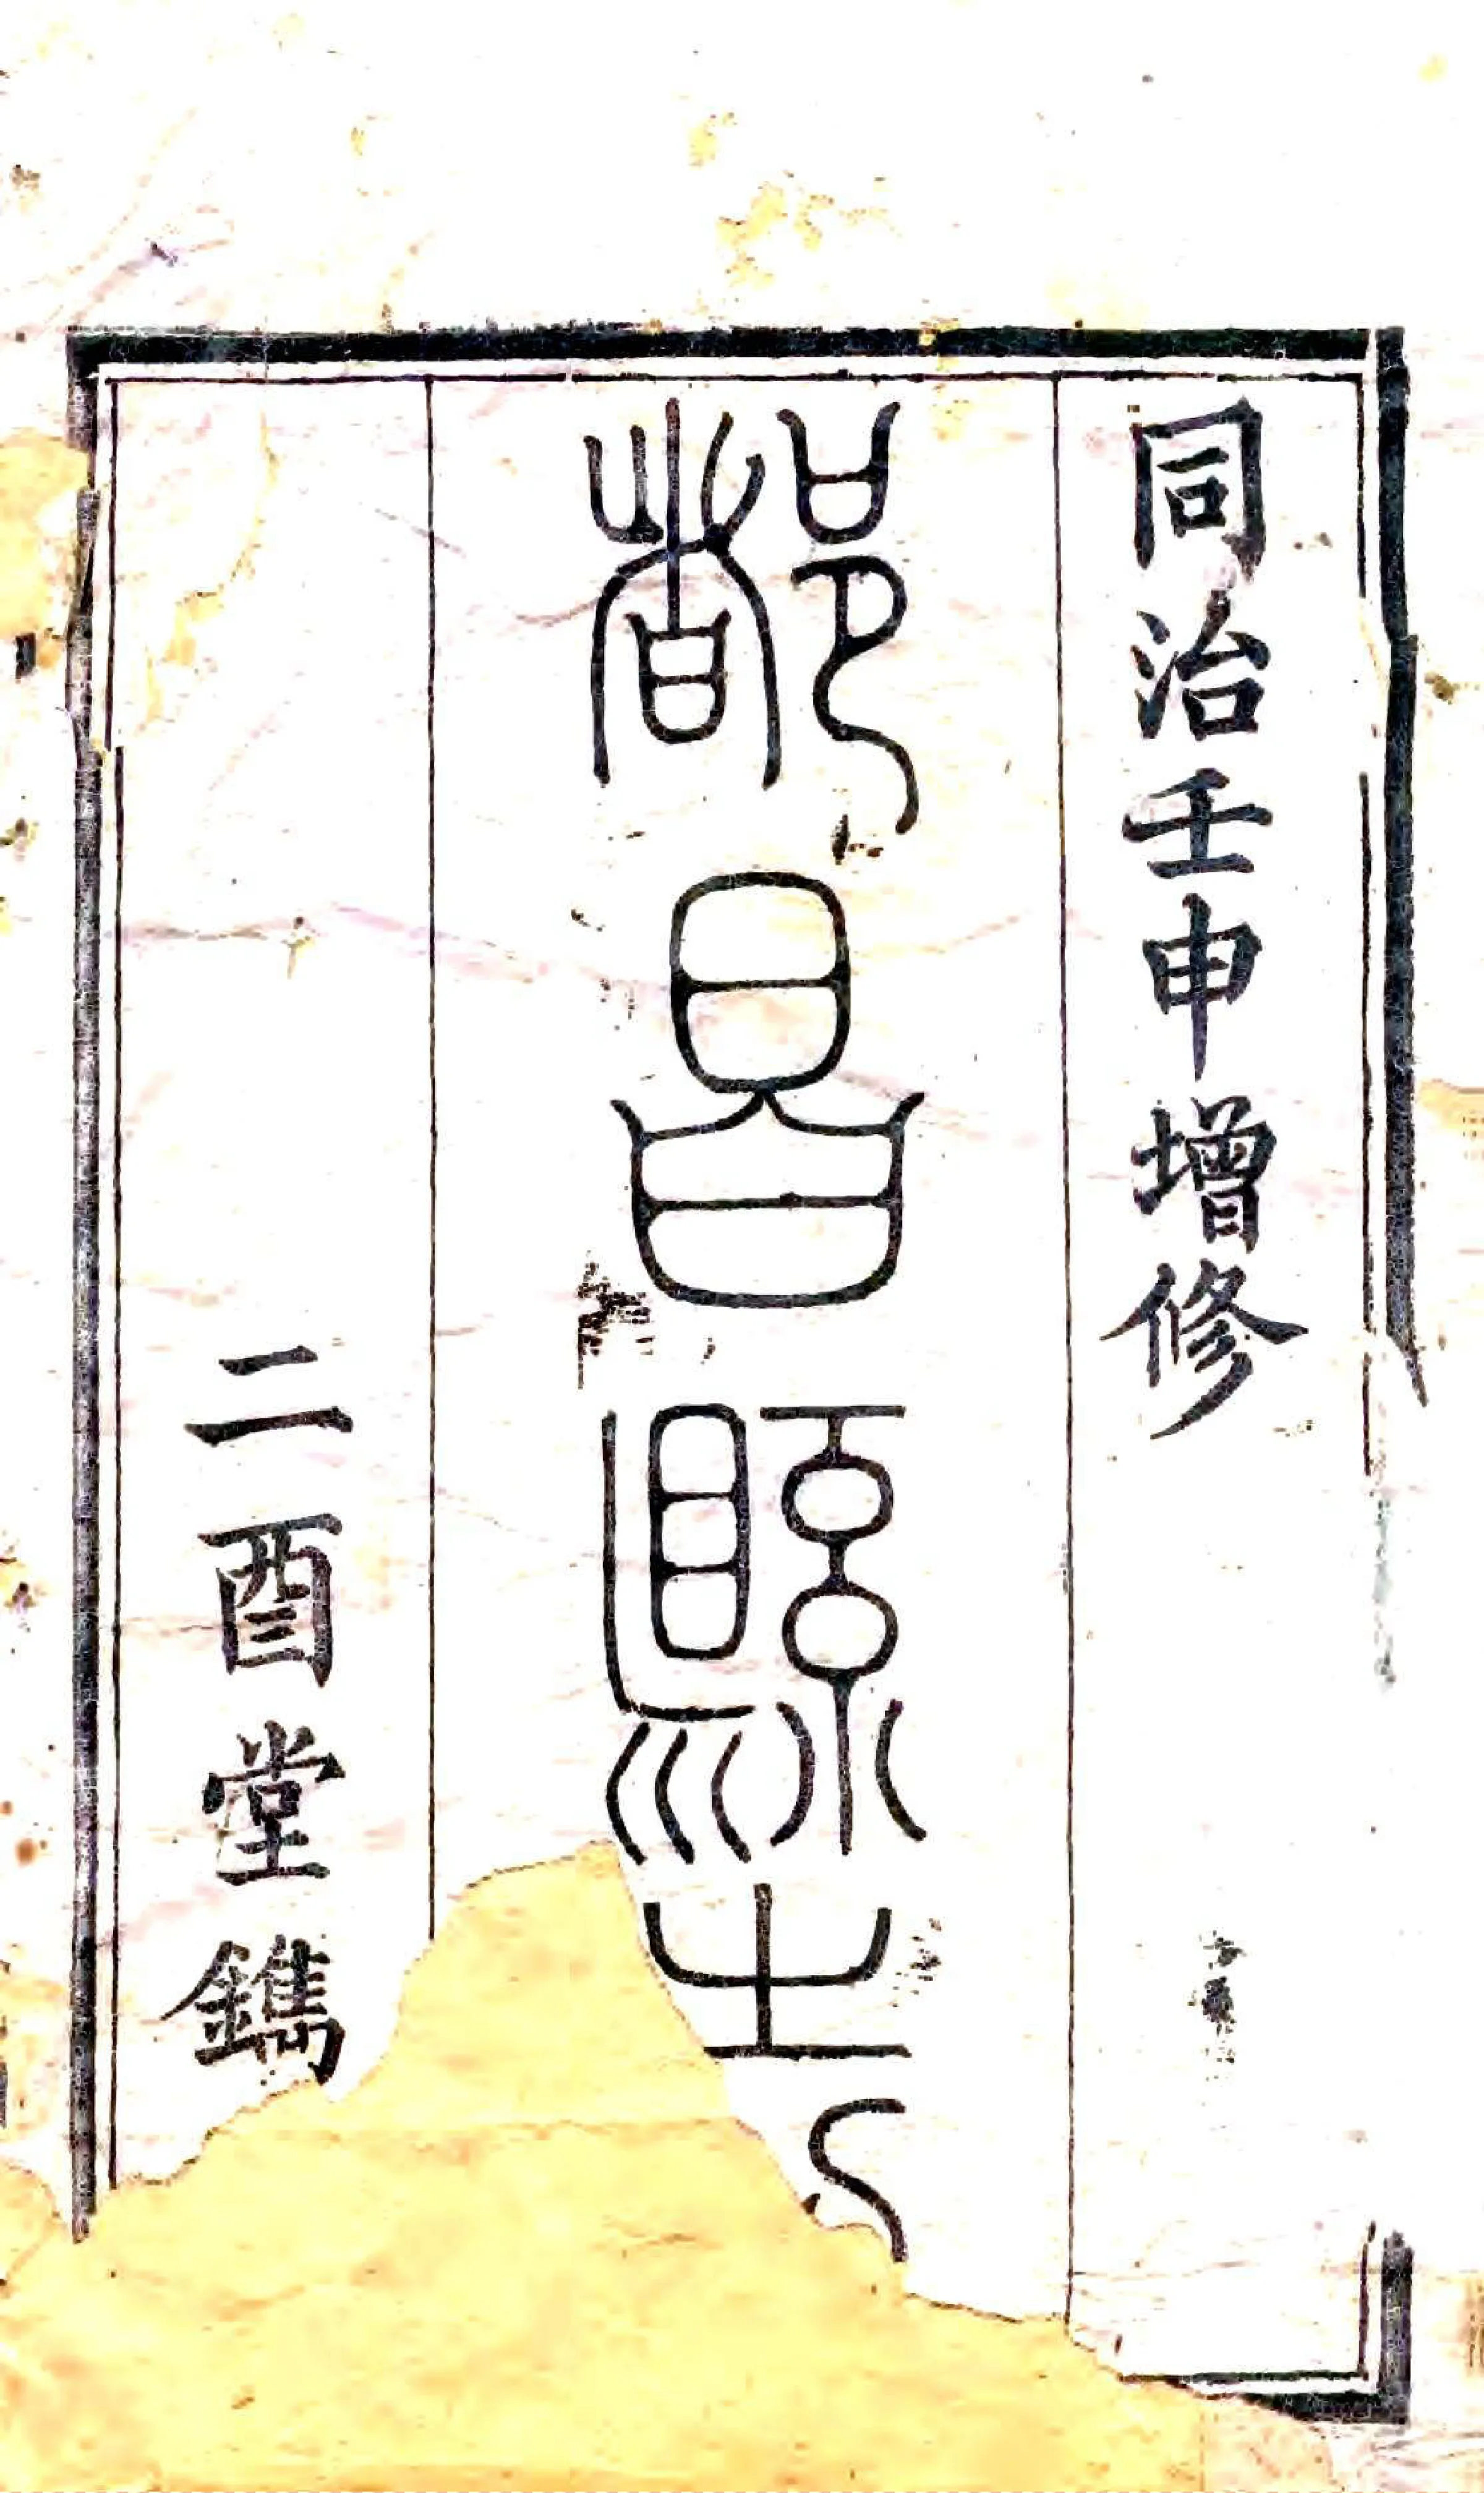 同治壬申增修
都昌縣志
二酉堂鐫